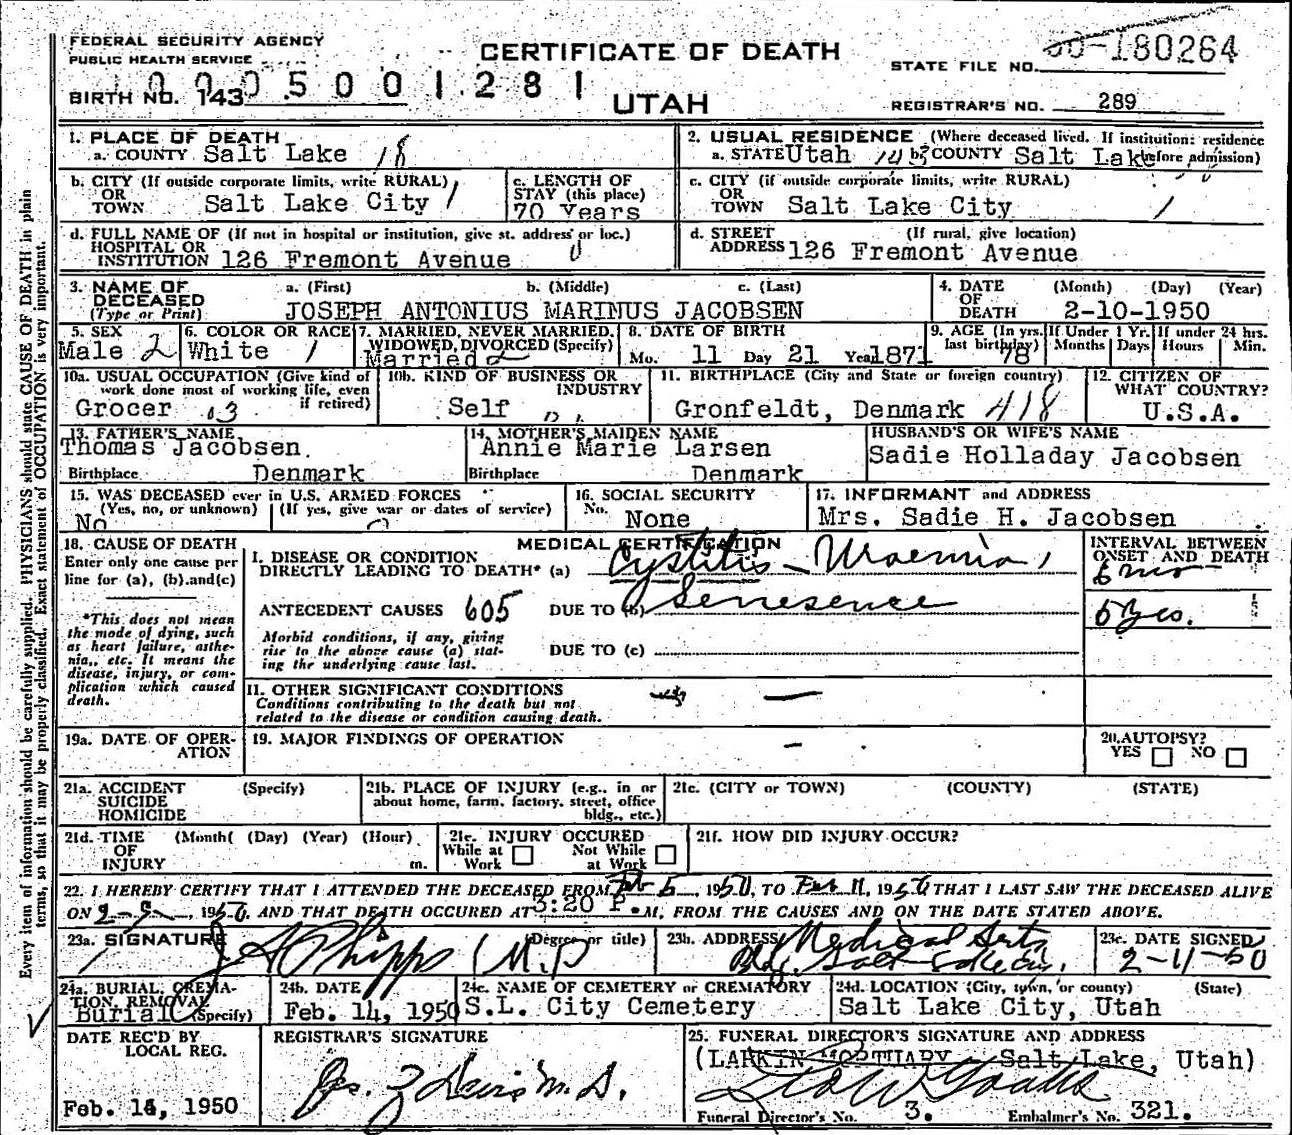 FEDERAL SECURITY AGENCY
PUBLIC HEALTH SERVICE
CERTIFICATE OF DEATH
UTAH
STATE FILE NO. 50-180264
BIRTH NO. 143
0005001281
REGISTRAR'S NO. 289
Every item of information should be carefully supplied. PHYSICIANS should state CAUSE OF DEATH in plain
terms, so that it may be properly classified. Exact statement of OCCUPATION is very important.
1. PLACE OF DEATH
a. COUNTY Salt Lake 18
2. USUAL RESIDENCE (Where deceased lived. If institution: residence
a. STATE Utah b. COUNTY Salt Lake before admission)
b. CITY (If outside corporate limits, write RURAL)
OR
TOWN Salt Lake City 1
c. LENGTH OF
STAY (this place)
70 Years
c. CITY (if outside corporate limits, write RURAL)
OR
TOWN Salt Lake City 1
d. FULL NAME OF (If not in hospital or institution, give st. address or loc.)
HOSPITAL OR
INSTITUTION 126 Fremont Avenue 0
d. STREET (If rural, give location)
ADDRESS 126 Fremont Avenue
3. NAME OF a. (First) b. (Middle) c. (Last)
DECEASED
(Type or Print) JOSEPH ANTONIUS MARINUS JACOBSEN
4. DATE (Month) (Day) (Year)
OF
DEATH 2-10-1950
5. SEX
Male 2
6. COLOR OR RACE
White 1
7. MARRIED, NEVER MARRIED,
WIDOWED, DIVORCED (Specify)
Married 2
8. DATE OF BIRTH
Mo. 11 Day 21 Year 1871
9. AGE (In yrs. last birthday) 78
If Under 1 Yr.
Months Days
If under 24 hrs.
Hours Min.
10a. USUAL OCCUPATION (Give kind of
work done most of working life, even
if retired)
Grocer 03
10b. KIND OF BUSINESS OR
INDUSTRY
Self
11. BIRTHPLACE (City and State or foreign country)
Gronfeldt, Denmark 418
12. CITIZEN OF
WHAT COUNTRY?
U.S.A.
13. FATHER'S NAME
Thomas Jacobsen.
Birthplace Denmark
14. MOTHER'S MAIDEN NAME
Annie Marie Larsen
Birthplace Denmark
HUSBAND'S OR WIFE'S NAME
Sadie Holladay Jacobsen
15. WAS DECEASED ever in U.S. ARMED FORCES
(Yes, no, or unknown) (If yes, give war or dates of service)
No
16. SOCIAL SECURITY
No. None
17. INFORMANT and ADDRESS
Mrs. Sadie H. Jacobsen
18. CAUSE OF DEATH
Enter only one cause per
line for (a), (b).and(c)
*This does not mean
the mode of dying, such
as heart failure, asthe-
nia,, etc. It means the
disease, injury, or com-
plication which caused
death.
MEDICAL CERTIFICATION
I. DISEASE OR CONDITION
DIRECTLY LEADING TO DEATH* (a) Cystitis - Uraemia,
ANTECEDENT CAUSES 605 DUE TO (b) Senesence
Morbid conditions, if any, giving
rise to the above cause (a) stat-
ing the underlying cause last.
DUE TO (c)
INTERVAL BETWEEN
ONSET AND DEATH
6 mo
5 yrs.
II. OTHER SIGNIFICANT CONDITIONS
Conditions contributing to the death but not
related to the disease or condition causing death.
19a. DATE OF OPER-
ATION
19. MAJOR FINDINGS OF OPERATION
20. AUTOPSY?
YES NO
21a. ACCIDENT (Specify)
SUICIDE
HOMICIDE
21b. PLACE OF INJURY (e.g., in or
about home, farm, factory, street, office
bldg., etc.)
21c. (CITY or TOWN) (COUNTY) (STATE)
21d. TIME (Month( (Day) (Year) (Hour)
OF
INJURY m.
21e. INJURY OCCURED
While at Work Not While at Work
21f. HOW DID INJURY OCCUR?
22. I HEREBY CERTIFY THAT I ATTENDED THE DECEASED FROM Feb 5, 1950, TO Feb 11, 1950 THAT I LAST SAW THE DECEASED ALIVE
ON 2-9-, 1950, AND THAT DEATH OCCURED AT 3:20 P.M., FROM THE CAUSES AND ON THE DATE STATED ABOVE.
23a. SIGNATURE (Degree or title)
J A Phipps M.D
23b. ADDRESS Medical Arts
Bldg. Salt Lake City.
23c. DATE SIGNED
2-11-50
24a. BURIAL, CREMA-
TION, REMOVAL
Burial (Specify)
24b. DATE
Feb. 14, 1950
24c. NAME OF CEMETERY or CREMATORY
S.L. City Cemetery
24d. LOCATION (City, town, or county) (State)
Salt Lake City, Utah
DATE REC'D BY
LOCAL REG.
Feb. 14, 1950
REGISTRAR'S SIGNATURE
Jos. Z Davis M.D.
25. FUNERAL DIRECTOR'S SIGNATURE AND ADDRESS
(LARKIN MORTUARY - Salt Lake, Utah)
Funeral Director's No. 3. Embalmer's No. 321.